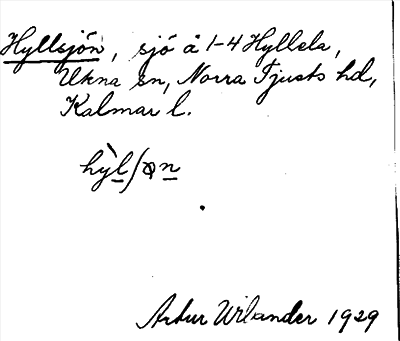 Hyllsjön, sjö å 1-4 Hyllela,
Ukna sn, Norra Tjusts hd,
Kalmar l.
hy̆l∫ɷn
Artur Wilander 1929